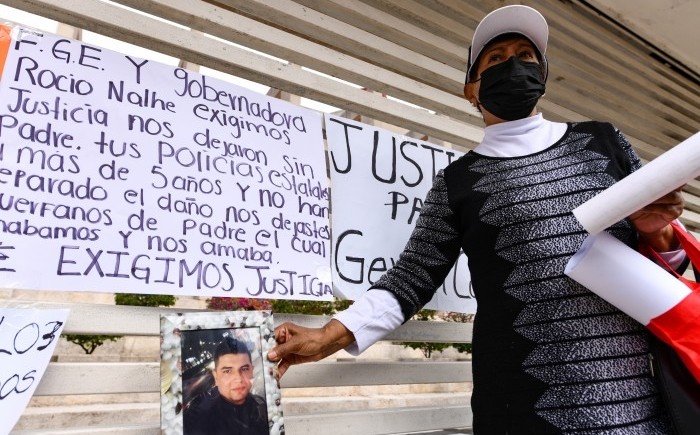 F.G.E. Y gobernadora
Rocio Nalhe exigimos
Justicia nos dejaron sin
Padre. tus Policías estatales
más de 5 años y no han
reparado el daño nos dejastes
huerfanos de Padre el cual
amabamos y nos amaba.
EXIGIMOS JUSTICIA
JUSTI
PA
Ge
LOS
os